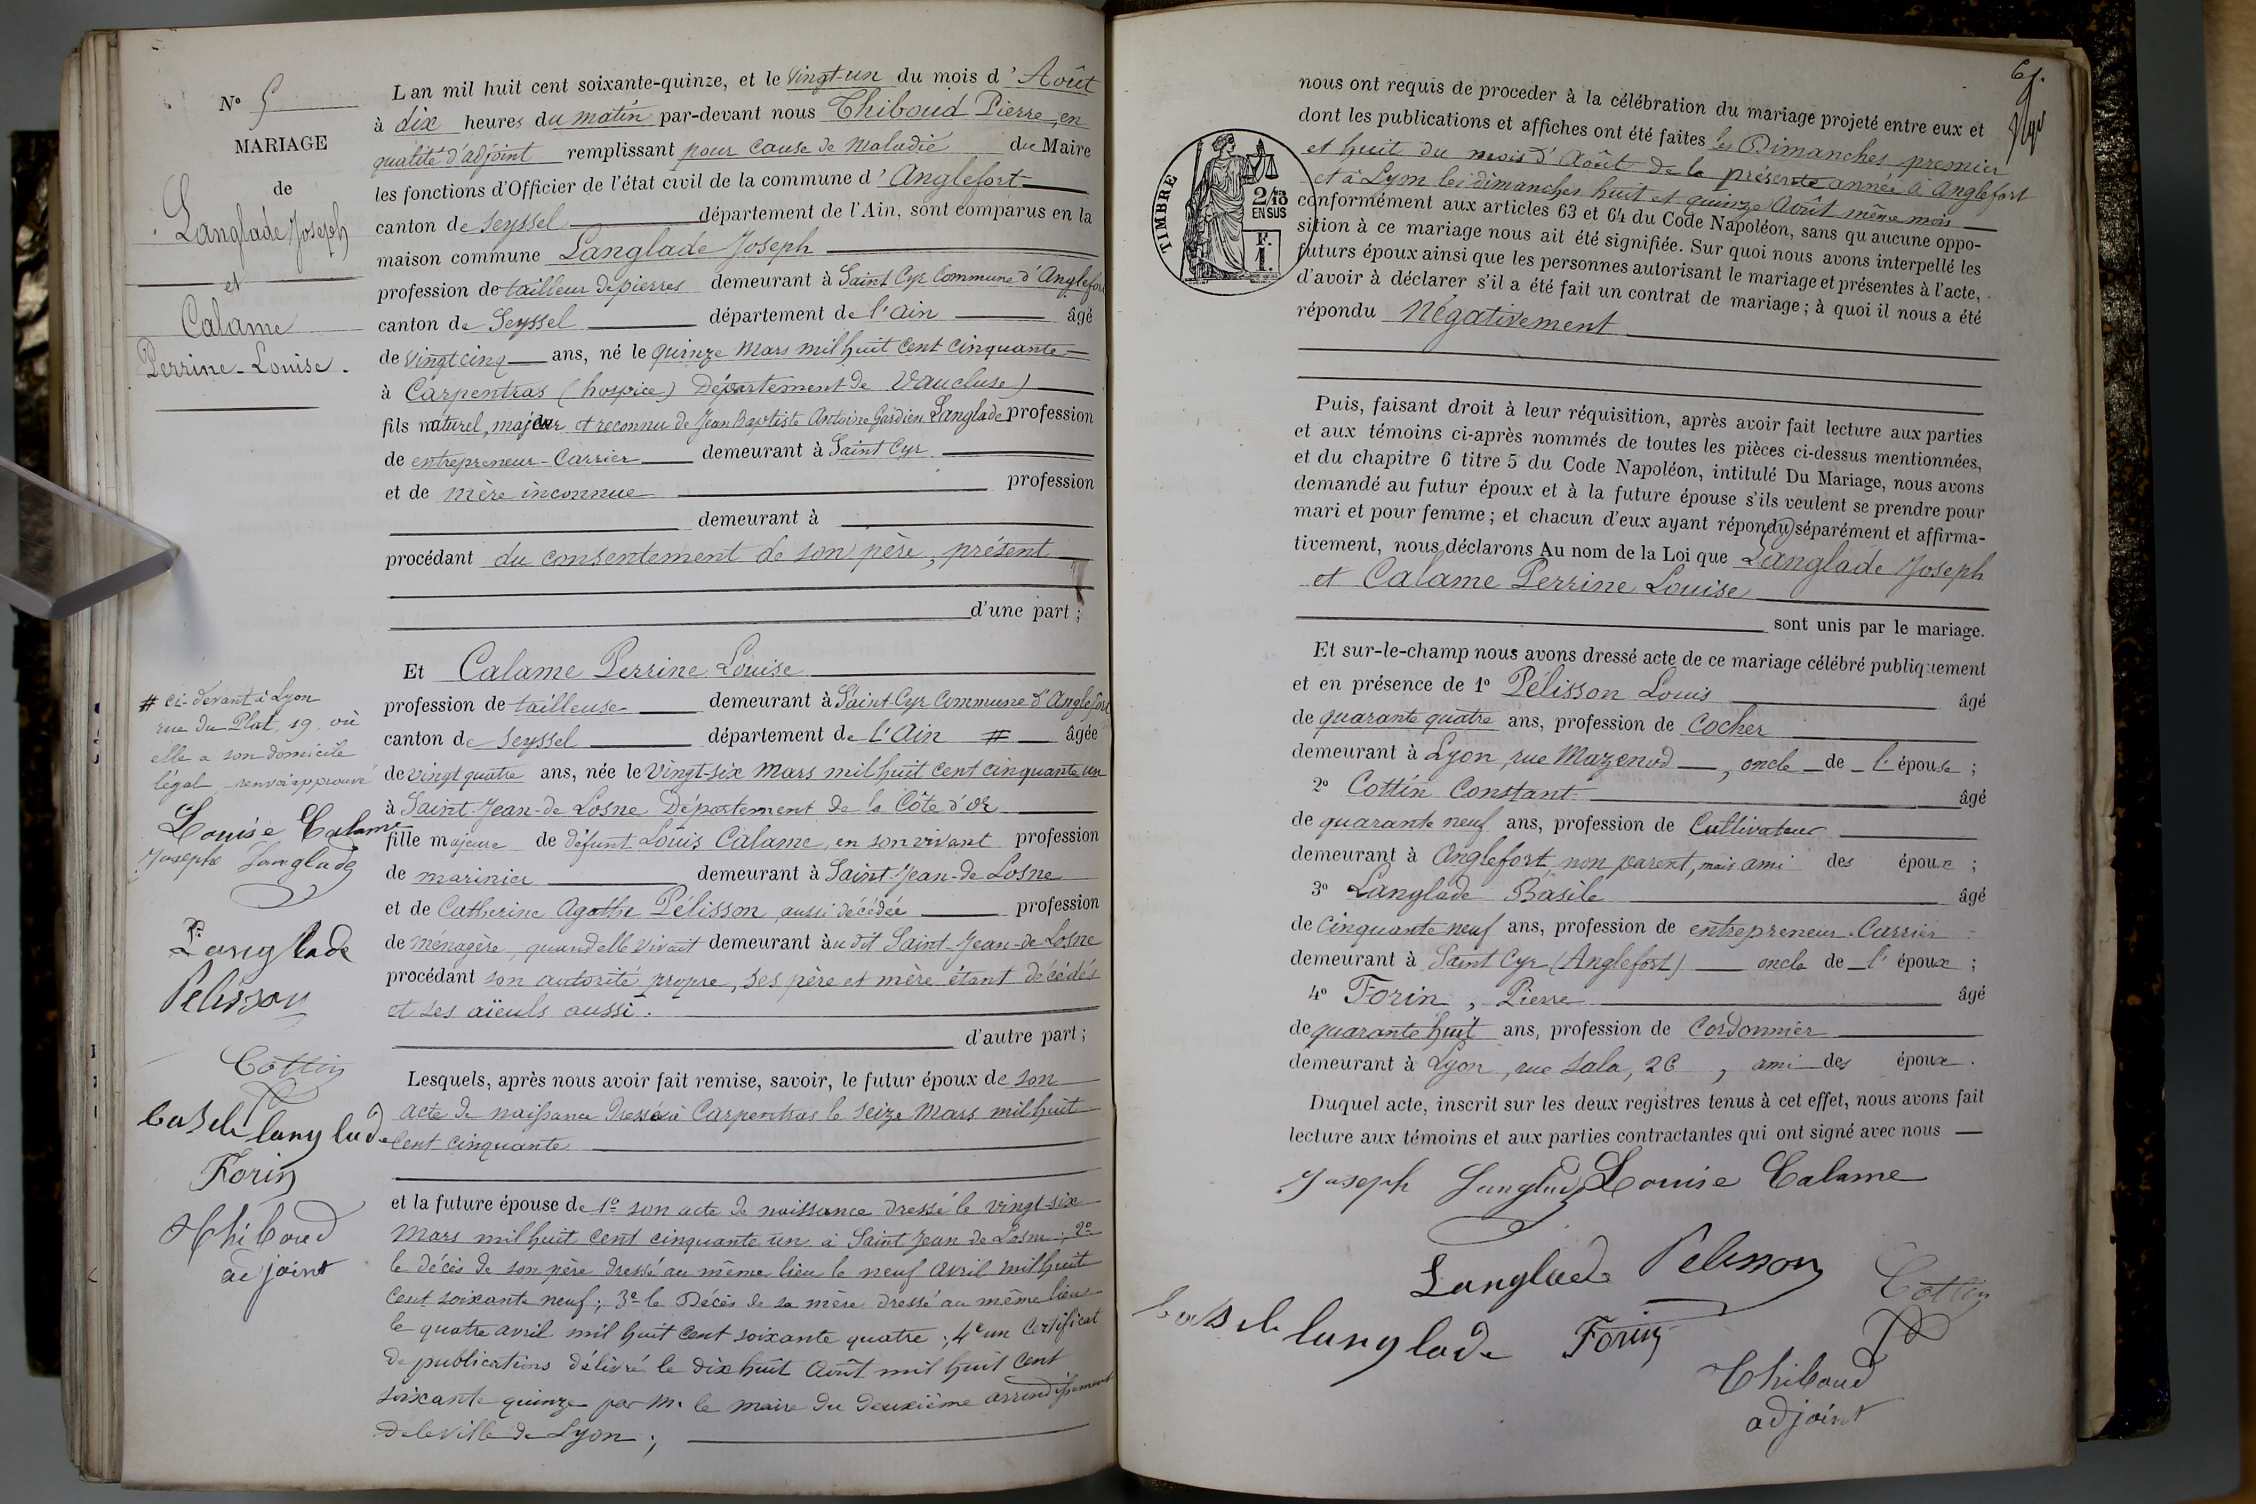 N° 5
MARIAGE
de
Langlade Joseph
et
Calame
Perrine-Louise.
L an mil huit cent soixante-quinze, et le vingt-un du mois d'Août
à dix heures du matin par-devant nous Thiboud Pierre, en
qualité d'adjoint remplissant pour cause de maladie du Maire
les fonctions d'Officier de l'état civil de la commune d'Anglefort
canton de Seyssel département de l'Ain, sont comparus en la
maison commune Langlade Joseph
profession de tailleur de pierres demeurant à Saint Cyr Commune d'Anglefort
canton de Seyssel département de l'Ain âgé
de vingt cinq ans, né le quinze Mars mil huit cent cinquante
à Carpentras (hospice) Département de Vaucluse)
fils naturel, majeur et reconnu de Jean Baptiste Antoine Gardien Langlade profession
de entrepreneur-Carrier demeurant à Saint Cyr
et de mère inconnue profession
demeurant à
procédant du consentement de son père, présent
d'une part ;
Et Calame Perrine Louise
profession de tailleuse demeurant à Saint-Cyr Commune d'Anglefort
canton de Seyssel département de L'Ain # âgée
de vingt quatre ans, née le vingt-six Mars mil huit cent cinquante un
à Saint-Jean-de Losne Département de la Côte d'or
fille majeure de défunt Louis Calame, en son vivant profession
de marinier demeurant à Saint-Jean-de Losne
et de Catherine Agathe Pélisson aussi décédée profession
de ménagère, quand elle vivait demeurant àudit Saint-Jean-de Losne
procédant son autorité propre, ses père et mère étant décédés
et ses aïeuls aussi.
d'autre part ;
# ci-devant à Lyon
rue du Plat, 19 où
elle a son domicile
légal renvoi approuvé
Louise Calame
Joseph Langlade
Langlade
Pelisson
Cottin
basele langlade
Forin
Thiboud
adjoint
Lesquels, après nous avoir fait remise, savoir, le futur époux de son
acte de naissance dressé à Carpentras le seize Mars mil huit
cent cinquante
et la future épouse de 1° son acte de naissance dressé le vingt-six
Mars mil huit cent cinquante un à Saint Jean de Losne ; 2°
le décès de son père dressé au même lieu le neuf avril mil huit
cent soixante neuf ; 3° le Décès de sa mère dressé au même lieu
le quatre avril mil huit cent soixante quatre ; 4° un Certificat
de publications délivré le dix huit Août mil huit cent
soixante quinze par M. le maire du deuxième arrondissement
de la ville de Lyon ;
nous ont requis de proceder à la célébration du mariage projeté entre eux et
dont les publications et affiches ont été faites les Dimanches premier
et huit du mois d'Août de la présente année à Anglefort
et à Lyon les dimanches huit et quinze Août même mois
TIMBRE
2/10
EN SUS
F.
1.
conformément aux articles 63 et 64 du Code Napoléon, sans qu aucune oppo-
sition à ce mariage nous ait été signifiée. Sur quoi nous avons interpellé les
futurs époux ainsi que les personnes autorisant le mariage et présentes à l'acte,
d'avoir à déclarer s'il a été fait un contrat de mariage ; à quoi il nous a été
répondu Négativement
Puis, faisant droit à leur réquisition, après avoir fait lecture aux parties
et aux témoins ci-après nommés de toutes les pièces ci-dessus mentionnées,
et du chapitre 6 titre 5 du Code Napoléon, intitulé Du Mariage, nous avons
demandé au futur époux et à la future épouse s'ils veulent se prendre pour
mari et pour femme ; et chacun d'eux ayant répondu séparément et affirma-
tivement, nous déclarons Au nom de la Loi que Langlade Joseph
et Calame Perrine Louise
sont unis par le mariage.
Et sur-le-champ nous avons dressé acte de ce mariage célébré publiquement
et en présence de 1° Pélisson Louis âgé
de quarante quatre ans, profession de Cocher
demeurant à Lyon, rue Mazenod, oncle de l'épouse ;
2° Cottin Constant âgé
de quarante neuf ans, profession de Cultivateur
demeurant à Anglefort, non parent, mais ami des époux ;
3° Langlade Basile âgé
de Cinquante neuf ans, profession de entrepreneur-Carrier
demeurant à Saint Cyr (Anglefort) oncle de l'époux ;
4° Forin, Pierre âgé
de quarante huit ans, profession de Cordonnier
demeurant à Lyon, rue Sala, 26, ami des époux.
Duquel acte, inscrit sur les deux registres tenus à cet effet, nous avons fait
lecture aux témoins et aux parties contractantes qui ont signé avec nous
Joseph Langlade Louise Calame
Langlade Pelisson Cottin
basele langlade Forin
Thiboud
adjoint